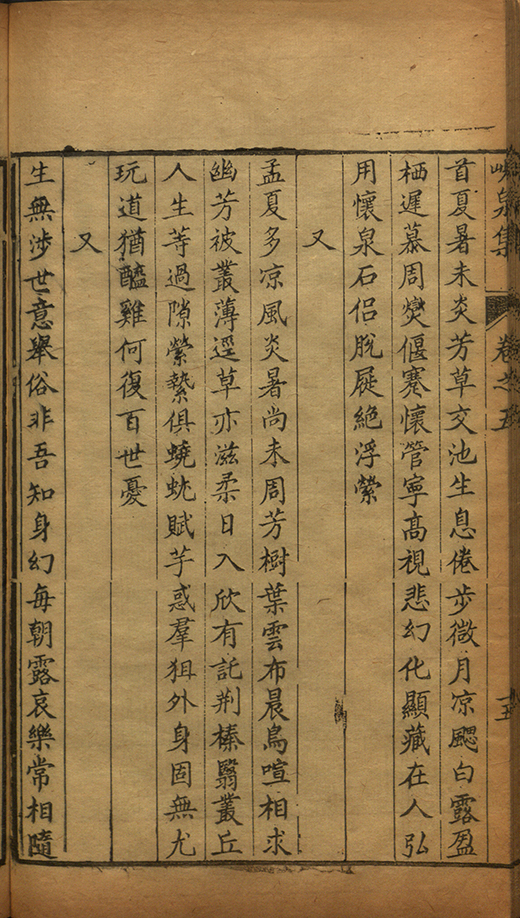 峴泉集 卷之五 十五
首夏暑未炎芳草交池生息倦步微月凉颸白露盈
栖遲慕周爕偃蹇懷管寧高視悲幻化顯藏在人弘
用懷泉石侣脱屣絶浮縈
又
孟夏多凉風炎暑尚未周芳樹葉雲布晨鳥喧相求
幽芳被叢薄逕草亦滋柔日入欣有託荆榛翳叢丘
人生等過隙縈縶俱蟯蚘賦芧惑羣狙外身固無尤
玩道猶醯雞何復百世憂
又
生無涉世意舉俗非吾知身幻每朝露哀樂常相隨